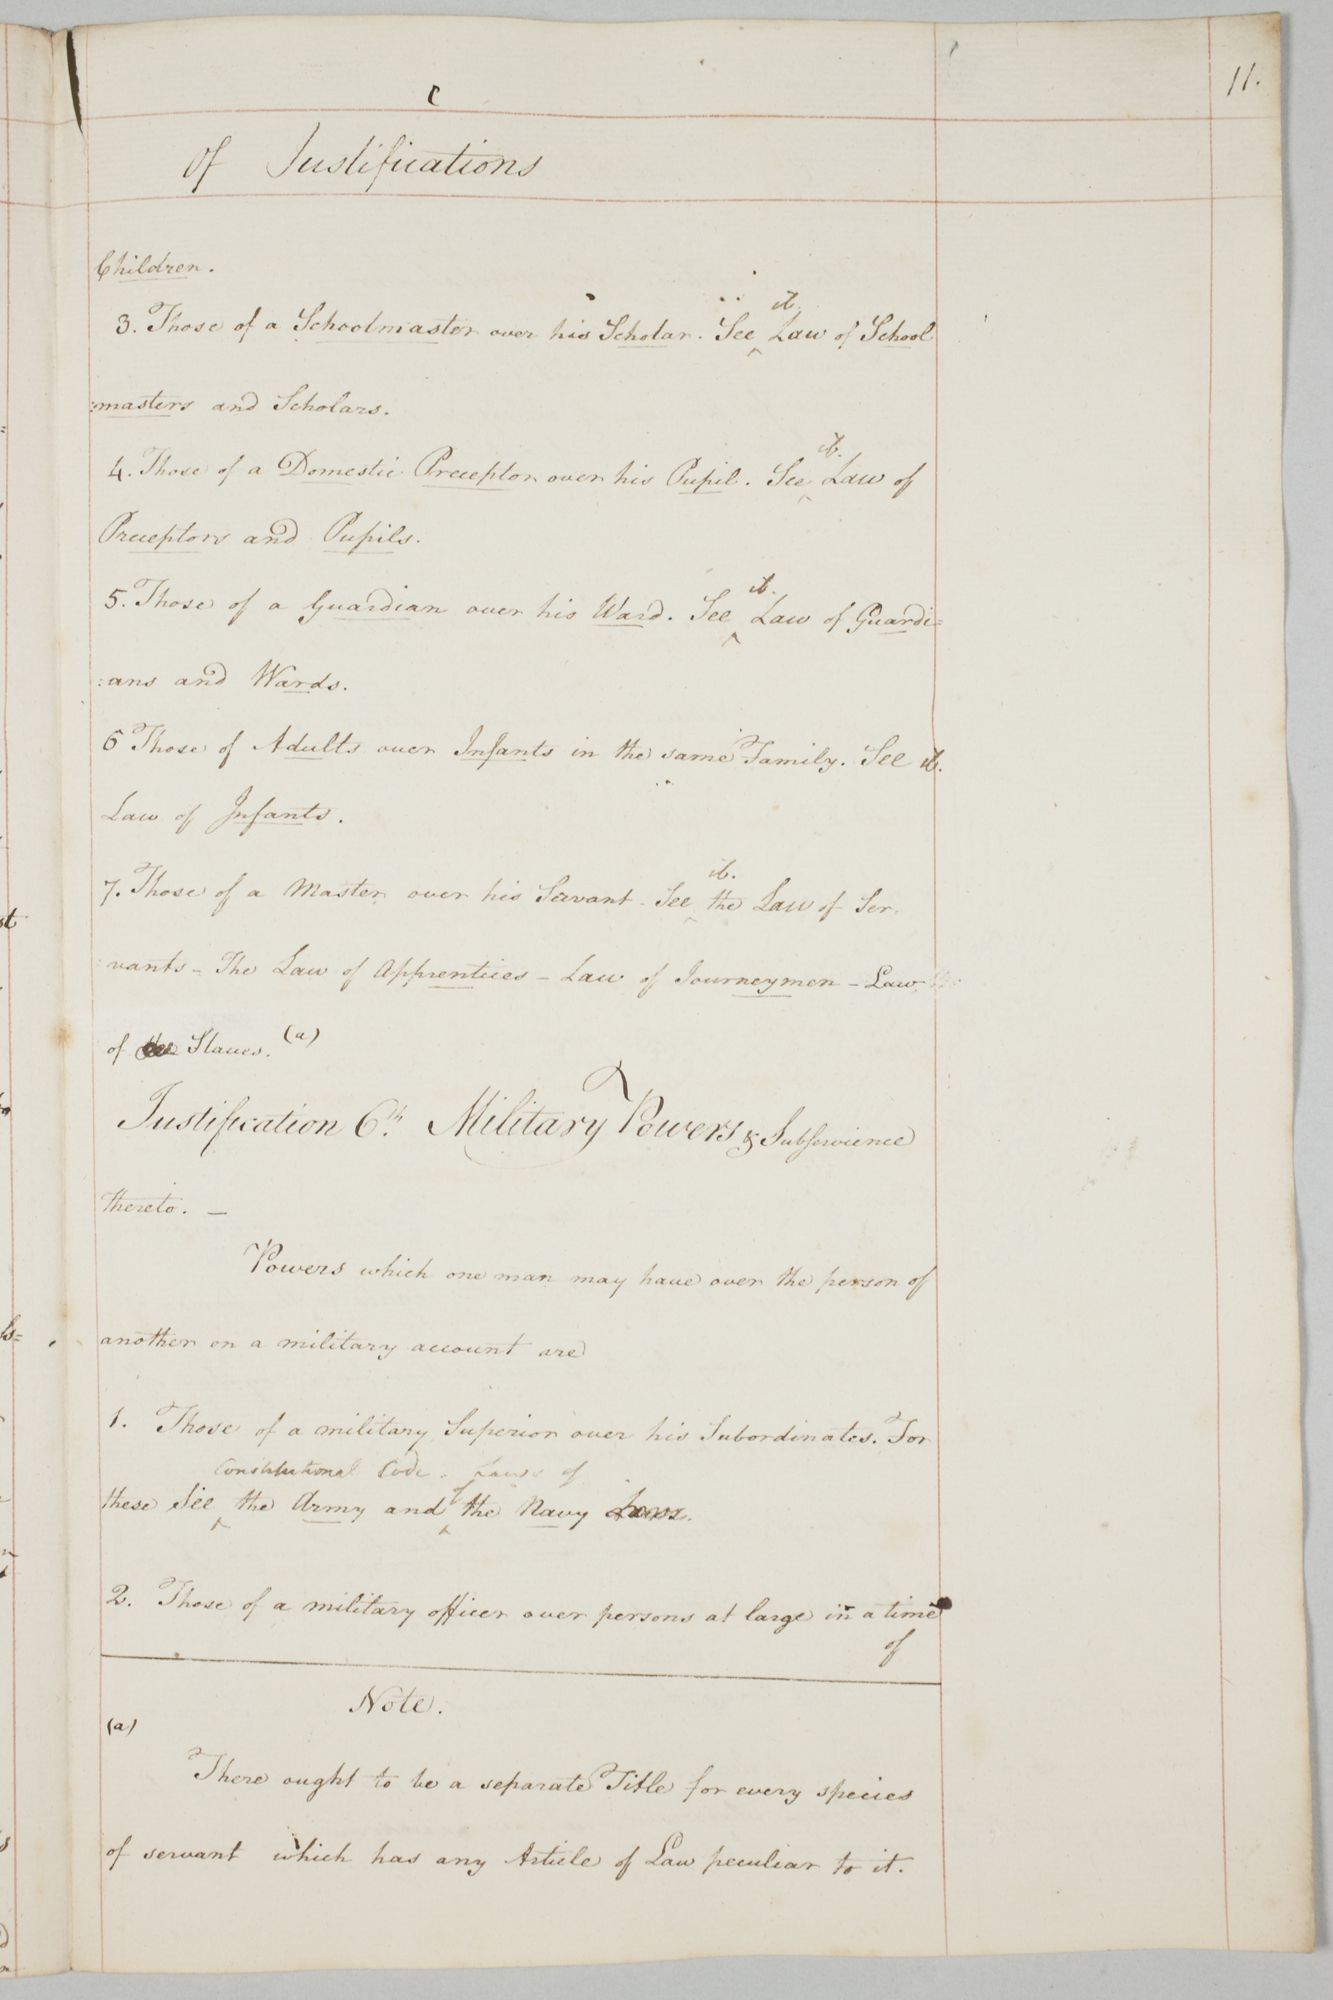 C
11.
Of Justifications
Children.
ib.
3. Those of a Schoolmaster over his Scholar. See Law of School
:masters and Scholars.
ib.
4. Those of a Domestic Preceptor over his Pupil. See Law of
Preceptors and Pupils.
ib.
5. Those of a Guardian over his Ward. See Law of Guardi=
:ans and Wards.
6 Those of Adults over Infants in the same Family. See ib.
Law of Infants.
ib.
7. Those of a Master over his Servant. See the Law of Ser.
:vants - The Law of Apprentices - Law of Journeymen - Law
of Slaves. (a)
Justification 6th. Military Powers & Subservience
thereto. -
Powers which one man may have over the person of
another on a military account are
1. Those of a military Superior over his Subordinates. For
Constitutional Code. Laws of
these See the Army and of the Navy Laws.
2. Those of a military officer over persons at large in a time
of
Note.
(a)
There ought to be a separate Title for every species
of servant which has any Article of Law peculiar to it.